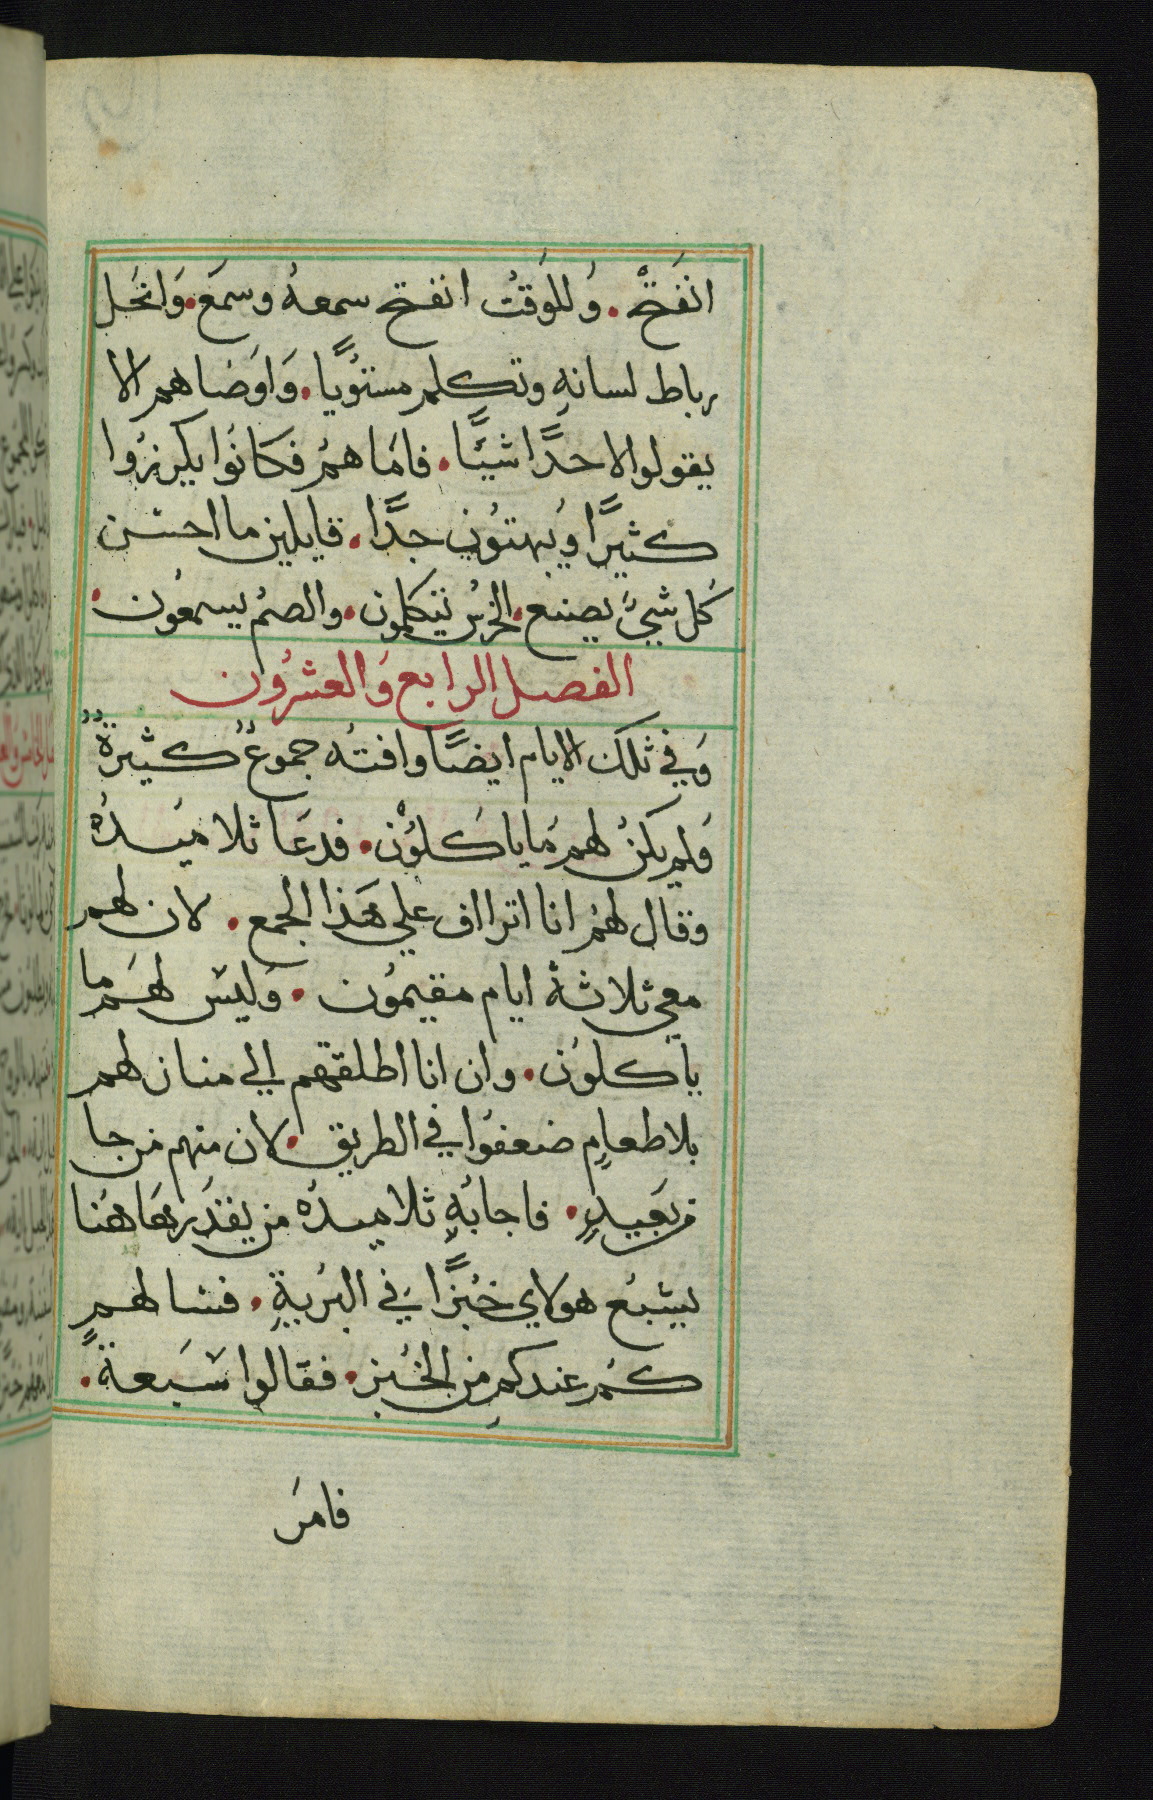 انفَتحْ. وَللوَقتُ انفتح سمعهُ وسمَع. وَانحَل
رباط لسانهِ وتكلم مستوُيًا. وَاوَصَاهم الا
يقولوا لاحدًا شيئًا. فامَا همُ فكَانوُا يكرزُوا
كثيرًا ويُبهتوُن جدًا. قايلين ما احسَن
كُل شيءَ يصنع. الخرسُ يتكلمون. والصمُ يسمعُون.
الفصل الرابع وَالعشرُون
وَفي تلكَ الايام ايضًا وافتهُ جموعُ كثيرةٌ
وَلم يكنُ لهم مَا ياكلوُن. فدعَا تلاميَدُه
وقال لهمُ انا اتراف علي هَذا الجمع. لان لهم
معي ثلاثةُ ايام مقيموُن. وَليسَ لهَم ما
ياكلوُن. وان انا اطلقتهم الي منازلهم
بلا طعامٍ ضعفوُا في الطريق. لان منهم من جا
من بَعَيدٍ. فاجابُه تلاميدُه من يقدَر هَاهُنا
يشبعُ هولاي خبُزًا في البرُيةِ. فسالهمٍ
كمُ عندكم من الخبُز. فقالوا سَبعةً.
فامرَ